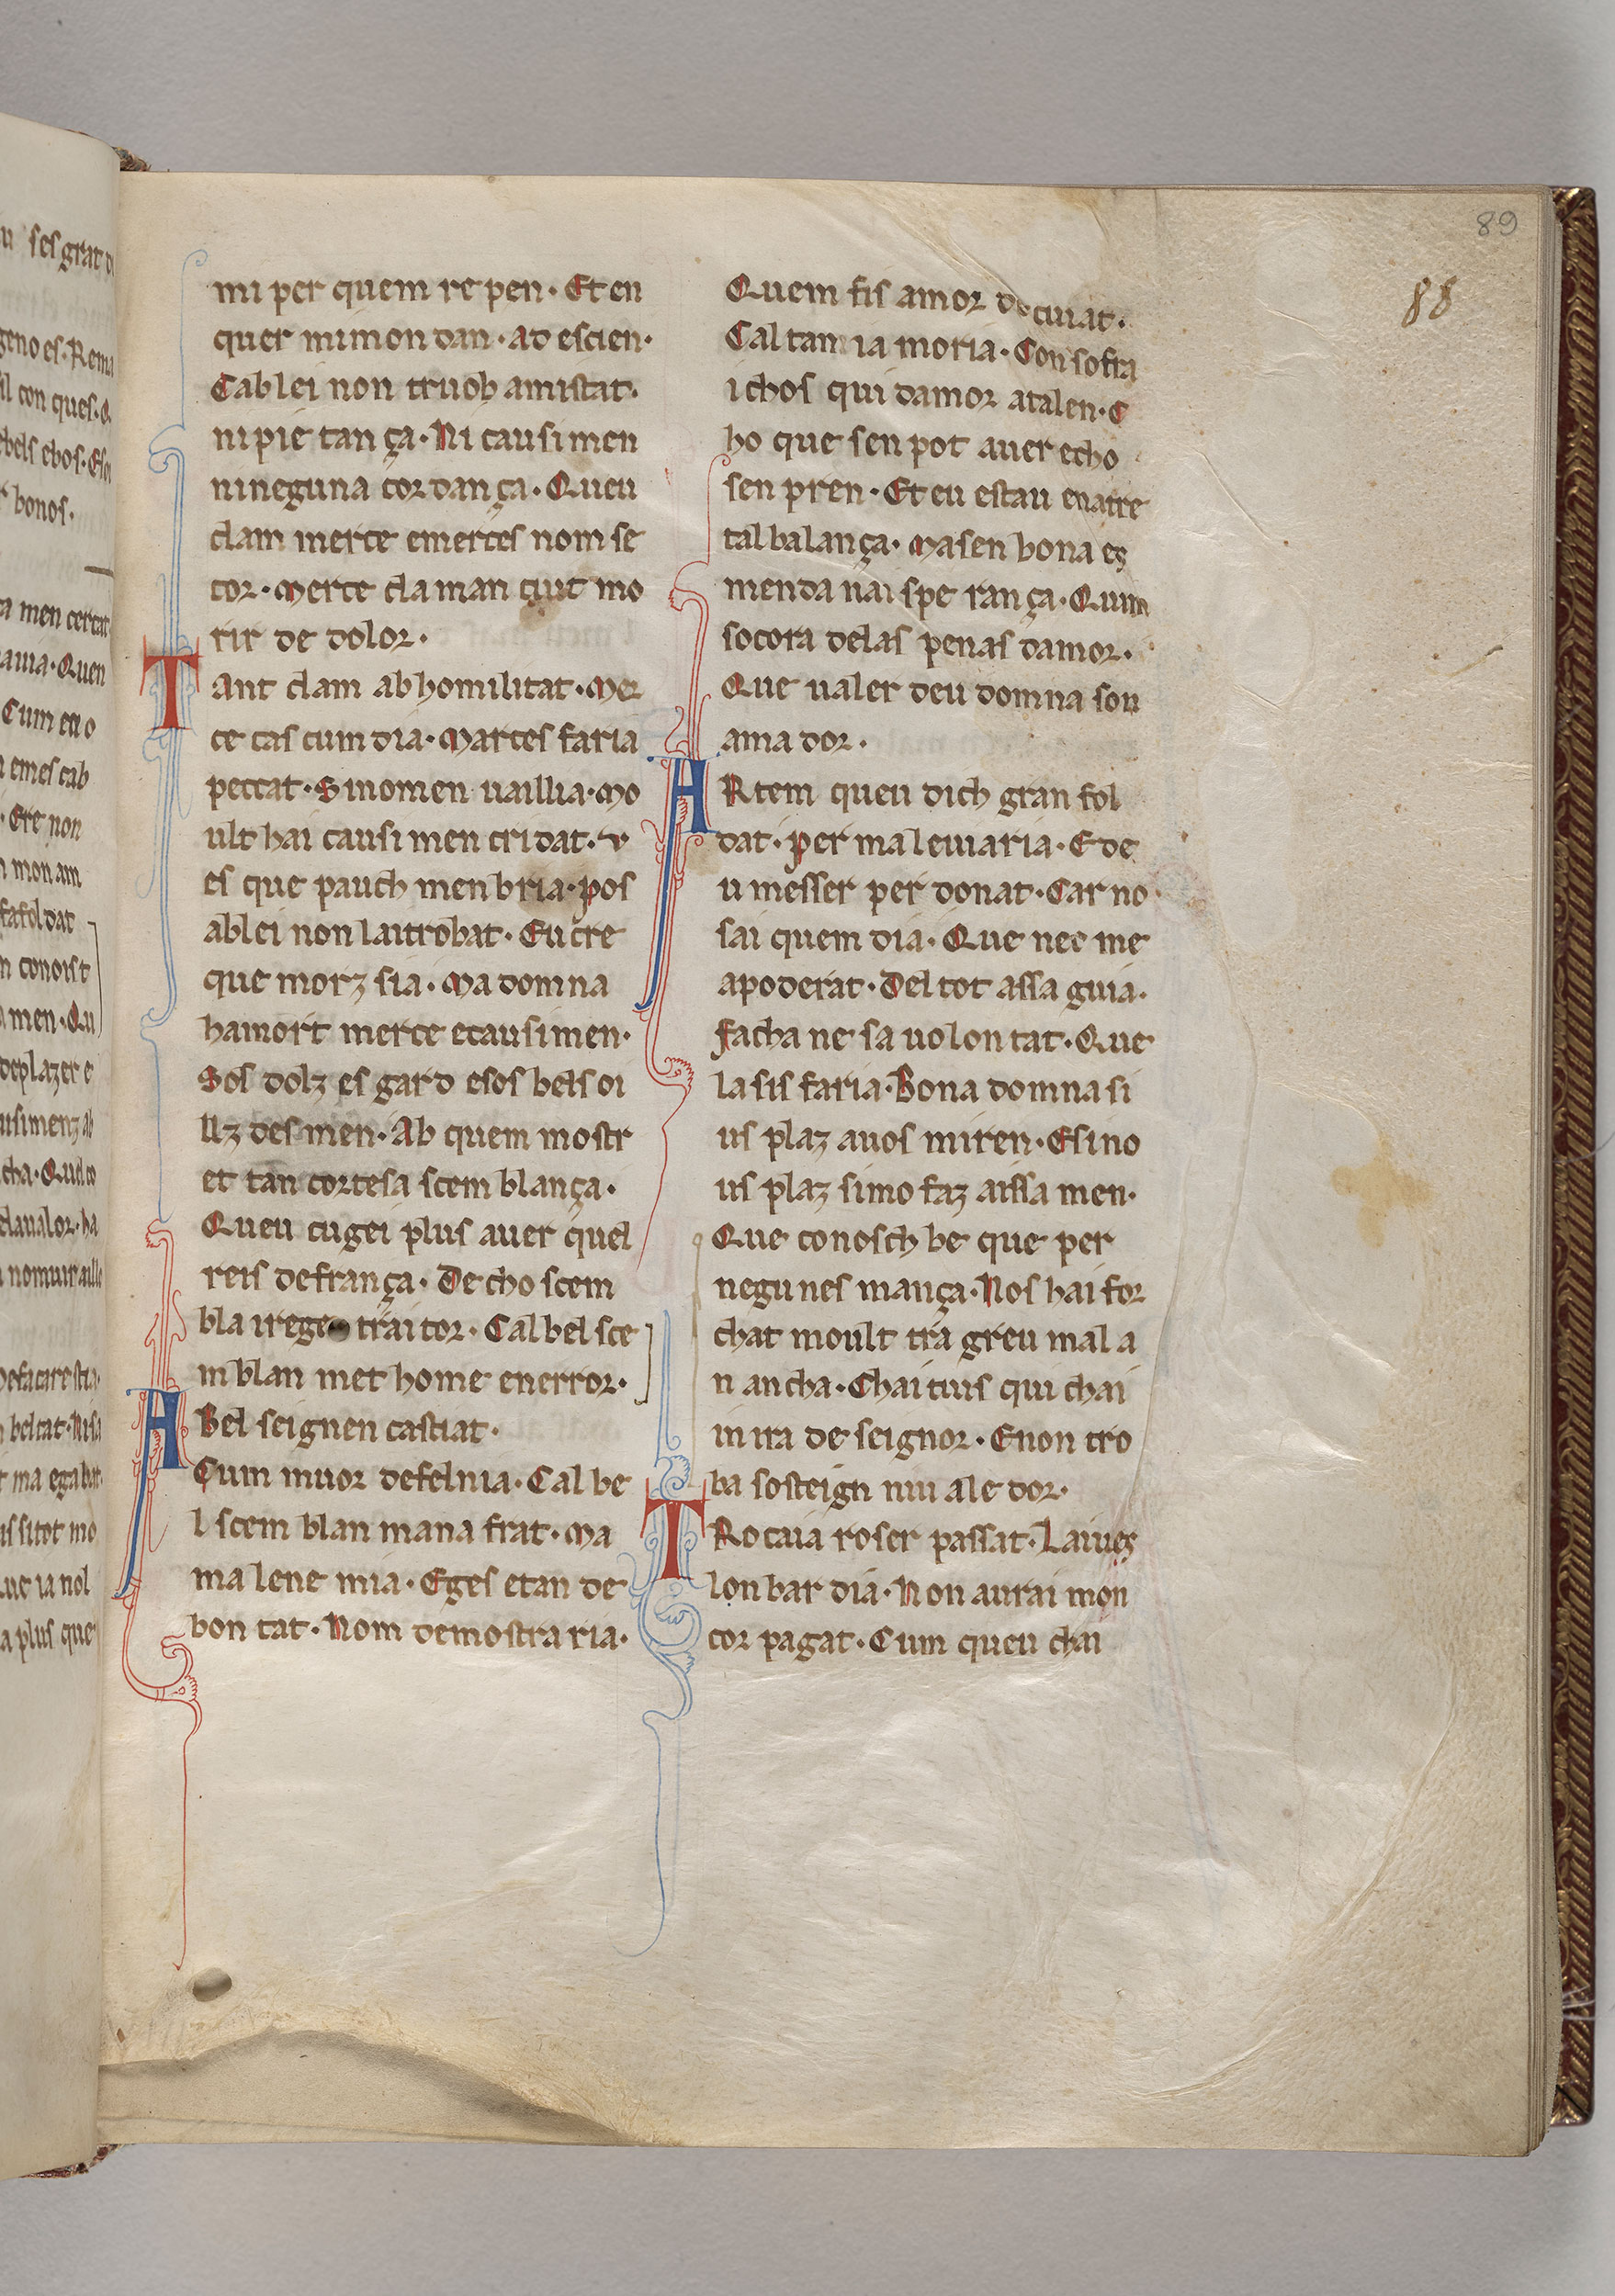 89
88
mi per quem re pen · Et en
quer mimon dan · ad escien ·
Cab lei non truob amistat ·
ni pie tan ça · Ni causi men
nineguna cor dan ça · Queu
clam merce emerces nom se
cor · merce cla man cuit mo
rir de dolor ·
Tant clam ab homilitat · Mer
ce cas cum dia · Marces faria
peccat · Sinomen uaillia · Mo
ult hai causi men cridat · v
es que pauch men bria · pos
ab lei non lai trobat · Eu cre
que morz sia · Ma domna
ha mort merce ecausi men ·
Sos dolz es gard esos bels oi
llz des men · Ab quem mostr
et tan cortesa scem blança ·
Queu cugei plus auer quel
reis de frança · De cho scem
bla irege traitor · Cal bel sce
m blan met home enerror ·
A Bel seignen castiat ·
Cum muor defelnia · Cal be
l scem blan mana frat · Ma
ma lene mia · E ges etan de
bon tat · Nom demostra ria ·
Quem fis amor de cuiat ·
Cal tan ia moria · Con sofra
i chos qui damor atalen · C
ho que sen pot auer echo
sen pren · Et eu estau enatre
tal balança · Masen bona es
menda nai spe ran ça · Qum
socora delas penas damor ·
Que ualer deu domna son
ama dor ·
ARtem queu dich gran fol
dat · per ma leuiaria · E de
u messer per donat · Car no
sai quem dia · Que nec me
apoderat · Del tot assa guia ·
facha ne sa uolon tat · Que
la sis faria · Bona domna si
us plaz auos miren · Esi no
us plaz simo faz aissa men ·
Que conosch be que per
negu nes mança · Nos hai for
chat moult tra greu mal a
n ancha · Chai tius qui chai
in ira de seignor · Enon tro
ba sosteign niu ale dor ·
TRo caia roser passat · Laiues
lon bar dia · Non aurai mon
cor pagat · Cum queu chai